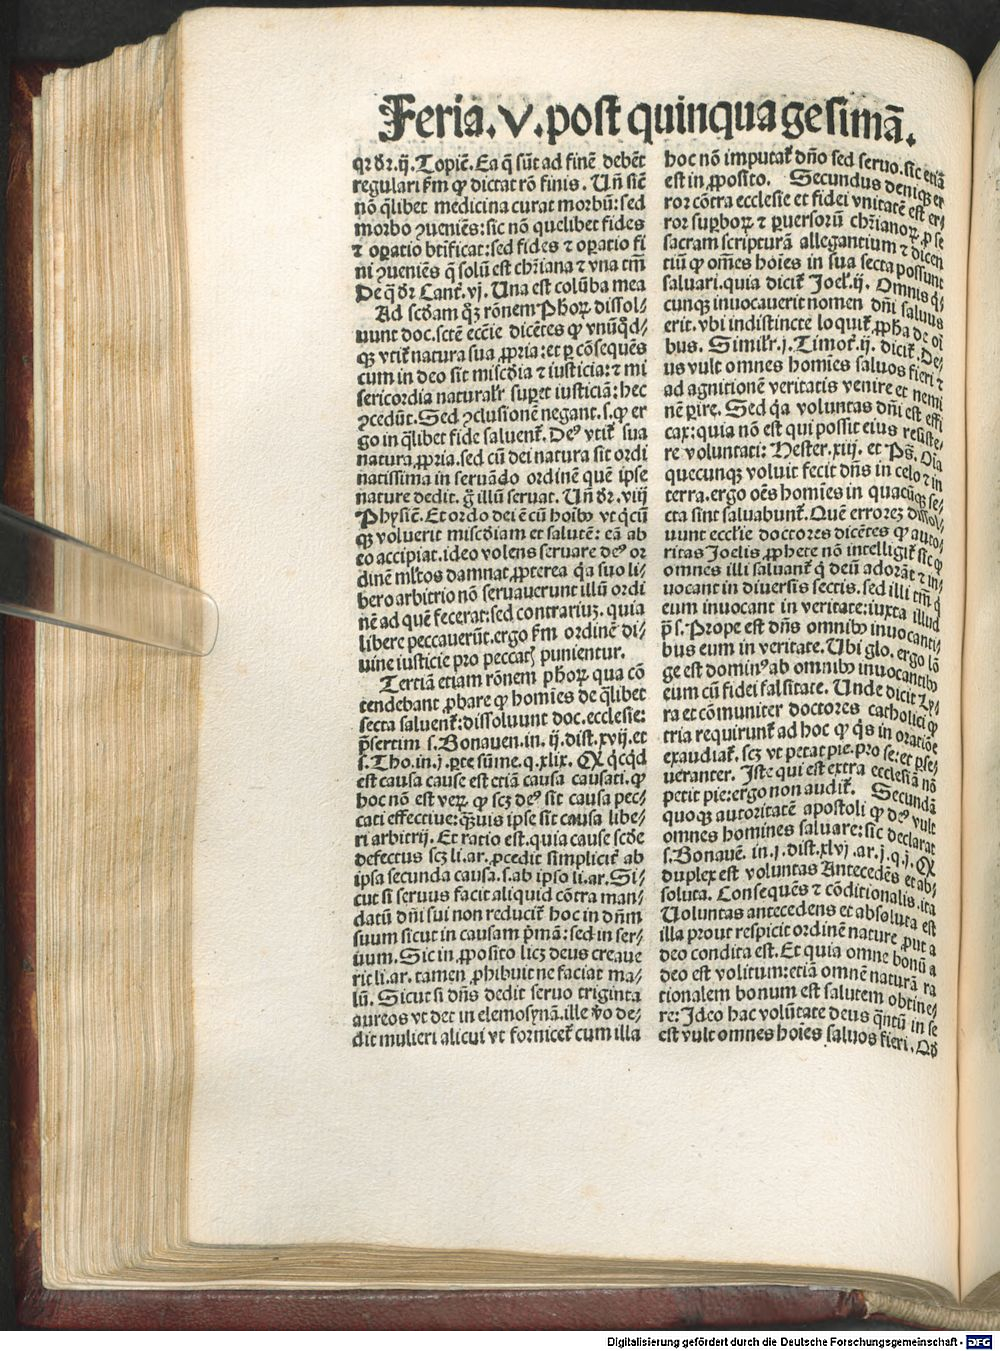 Feria. v. post quinquagesimā.
qr d͛r. ij. Topiē. Ea q̄ sūt ad finē debēt
regulari fm̄ ꝙ dictat rō finis. Un̄ sic̄
nō q̄libet medicina curat morbū: sed
morbo ꝯueniēs: sic nō quelibet fides
⁊ oꝑatio btīficat: sed fides ⁊ oꝑatio fi
ni ꝯueniēs q̄ solū est chr̄iana ⁊ vna tm̄
De q̄ d͛r Cant̛. vj. Una est colūba mea
Ad scd̄am qͥꝫ rōnem Phoꝝ dissol⸗
uunt doc. sctē eccīe dicētes ꝙ vnūqͦd⸗
qꝫ vtit̛ natura sua ꝓpria: et ꝑ cōsequēs
cum in deo sit misc̄dia et iusticia: ⁊ mi
sericordia naturalr̄ suꝑet iusticiā: hec
ꝯcedūt. Sed ꝯclusionē negant. s. ꝙ er
go in q̄libet fide saluent̛. Deꝰ vtit̛ sua
natura ꝓpria. sed cū dei natura sit ordi
natissima in seruādo ordinē quē ipse
nature dedit. g̊ illū seruat. Un̄ d͛r. viij
Phys̄iē. Et ordo dei ē cū hoībꝰ vt qͥcū
qꝫ voluerit misc̄diam et salutē: eā ab
eo accipiat. ideo volens seruare deꝰ or
dinē ml̛tos damnat ꝓpterea qͥa suo li⸗
bero arbitrio nō seruauerunt illū ordi
nē ad quē fecerat: sed contrariuꝫ. quia
libere peccauerūt. ergo fm̄ ordinē di⸗
uine iusticie pro peccat̛ punientur.
Tertiā etiam rōnem phoꝝ qua cō
tendebant ꝓbare ꝙ homīes de q̄libet
secta saluent̛: dissoluunt doc. ecclesie:
p̄sertim s. Bonauen. in. ij. dist. xvij. et
s. Tho. in. j. ꝑte sūme. q. xlix. Qꝛ qͥcqͥd
est causa cause est etiā causa causati. ꝙ
hoc nō est veꝝ. ꝙ scꝫ deꝰ sit causa pec⸗
cati effectiue: qͣꝫuis ipse sit causa libe⸗
ri arbitrij. Et ratio est. quia cause scd̄e
defectus scꝫ li. ar. ꝓcedit simplicit̛ ab
ipsa secunda causa. s. ab ipso li. ar. Si⸗
cut si seruus facit aliquid cōtra man⸗
datū dn̄i sui non reducit̛ hoc in dn̄m
suum sicut in causam pͥmā: sed in ser⸗
uum. Sic in ꝓposito licꝫ deus creaue
rit li. ar. tamen ꝓhibuit ne faciat ma⸗
lū. Sicut si dn̄s dedit seruo triginta
aureos vt det in elemosynā. ille v̊o de⸗
dit mulieri alicui vt fornicet̛ cum illa
hoc nō imputat̛ dn̄o sed seruo. sic etiā
est in ꝓposito. Secundus deniqꝫ er
ror cōtra ecclesie et fidei vnitatē est er⸗
ror suꝑboꝝ ⁊ ꝑuersorū chr̄ianoꝝ ꝑ se
sacram scripturā allegantium ⁊ dicen
tiū ꝙ om̄es hoīes in sua secta possunt
saluari. quia dicit̛ Joel̛. ij. Omnis qͥ⸗
cunqꝫ inuocauerit nomen dn̄i saluus
erit. vbi indistincte loquit̛ ꝓpha de oī
bus. Similr̄. j. Timot̛. ij. dicit̛. De⸗
us vult omnes homīes saluos fieri ⁊
ad agnitionē veritatis venire et nemi
nē ꝑire. Sed qͥa voluntas dn̄i est effi
cax: quia nō est qui possit eius resiste⸗
re voluntati: Hester. xiij. et Ps̄. Oīa
quecunqꝫ voluit fecit dn̄s in celo ⁊ in
terra. ergo oēs homīes in quacūqꝫ se⸗
cta sint saluabunt̛. Quē erroreꝫ dissol⸗
uunt eccl̛ie doctores dicētes ꝙ auto⸗
ritas Joelis ꝓphete nō intelligit̛ sic ꝙ
omnes illi saluant̛ qͥ deū adorāt ⁊ in⸗
uocant in diuersis sectis. sed illi tm̄ qͥ
eum inuocant in veritate: iuxta illud
p̄s. Prope est dn̄s omnibꝰ inuocanti⸗
bus eum in veritate. Ubi glo. ergo lō
ge est dominꝰ ab omnibꝰ inuocantibꝰ
eum cū fidei falsitate. Unde dicit Ly⸗
ra et cōmuniter doctores catholici ꝙ
tria requirunt̛ ad hoc ꝙ qͥs in oratiōe
exaudiat̛. scꝫ vt petat pie. pro se: et ꝑse⸗
ueranter. Iste qui est extra ecclesiā nō
petit pie: ergo non audit̛. Secundā
quoqꝫ autoritatē apostoli ꝙ deꝰ vult
omnes homines saluare: sic declarat
s. Bonauē. in. j. dist. xlvj. ar. j. q. j. Qꝛ
duplex est voluntas Antecedēs et ab⸗
soluta. Consequēs ⁊ cōditionalis. ita
Uoluntas antecedens et absoluta est
illa prout respicit ordinē nature ꝓut a
deo condita est. Et quia omne bonū a
deo est volitum: etiā omnē naturā ra
tionalem bonum est salutem obtine⸗
re: Ideo hac volūtate deus qͣntū in se
est vult omnes hoīes saluos fieri. Qd̛
Digitalisierung gefördert durch die Deutsche Forschungsgemeinschaft - DFG